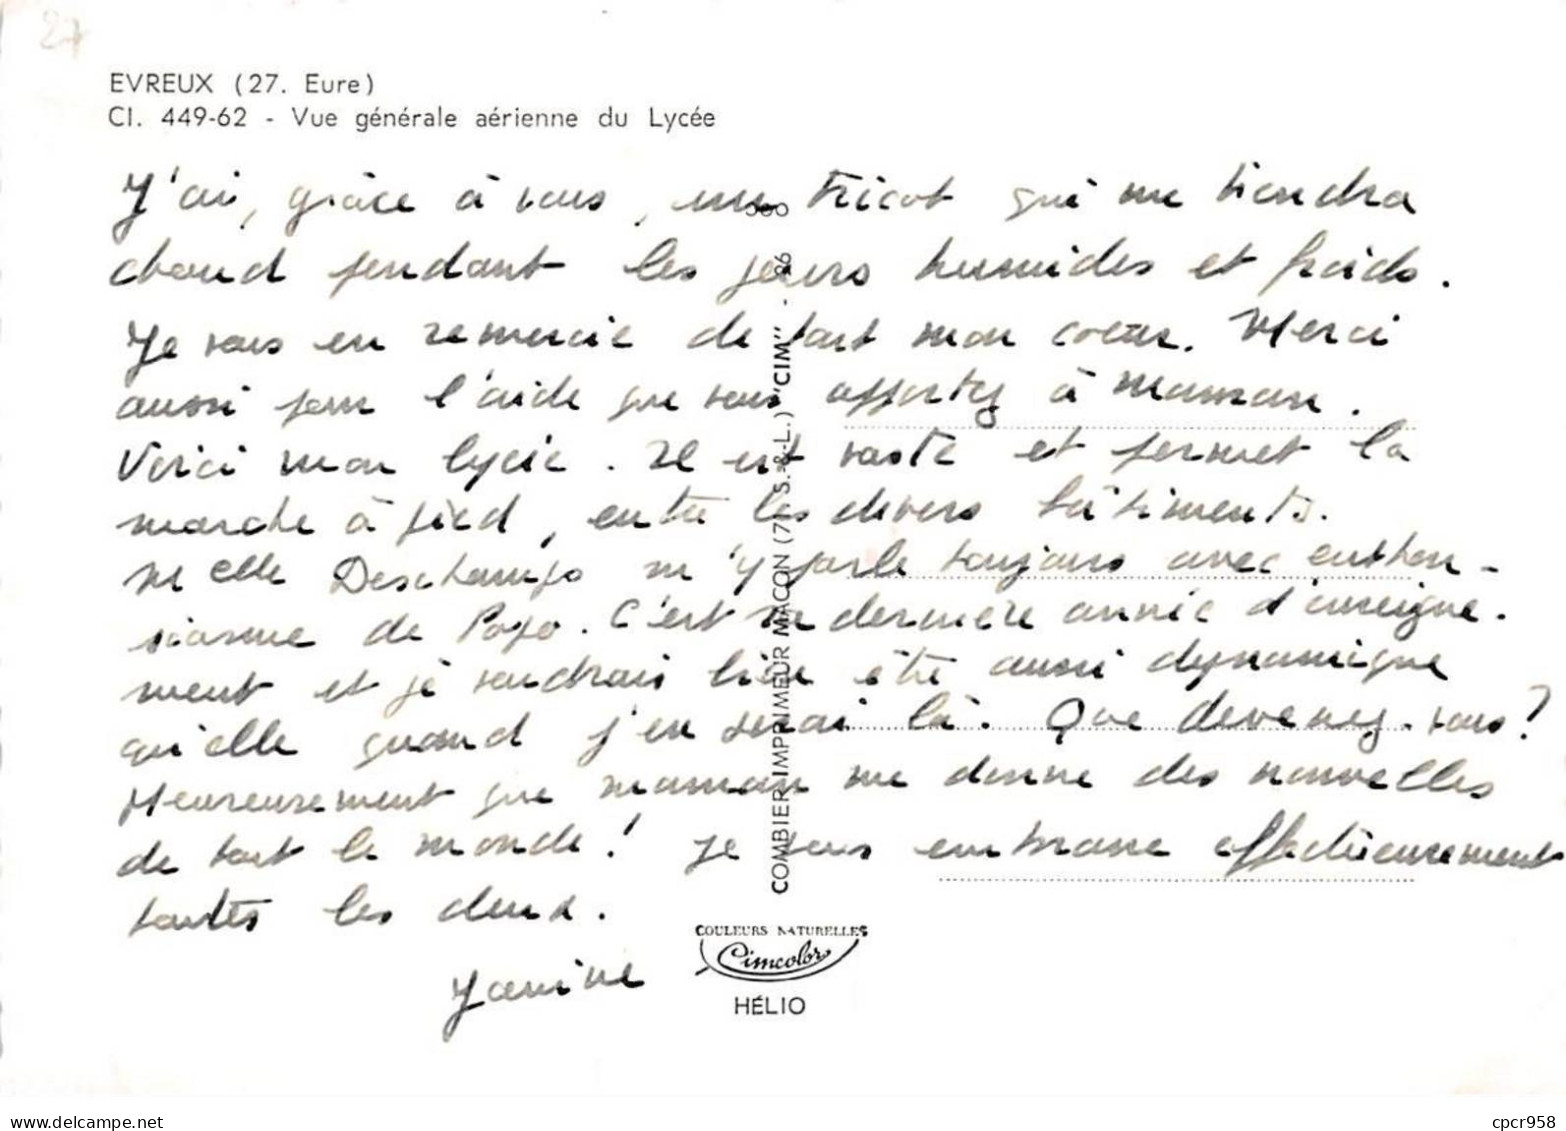 27
EVREUX (27. Eure)
CI. 449-62 - Vue générale aérienne du Lycée
J'ai, grâce à vous, un tricot qui me tiendra
chaud pendant les jours humides et froids.
Je vous en remercie de tout mon coeur. Merci
aussi pour l'aide que vous apportez à Maman.
Voici mon lycée. Il est vaste et permet la
marche à pied, entre les divers bâtiments.
Melle Deschamps m'y parle toujours avec enthou-
siasme de Papa. C'est sa dernière année d'enseigne-
ment et je voudrais bien être aussi dynamique
qu'elle quand j'en serai là. Que devenez-vous?
Heureusement que maman me donne des nouvelles
de tout le monde! Je vous embrasse affectueusement
toutes les deux.
Janine
COMBIER IMPRIMEUR MACON (71 S.-&-L.) "CIM"
COULEURS NATURELLES
Cimcolor
HÉLIO
delcampe.net
cpcr958